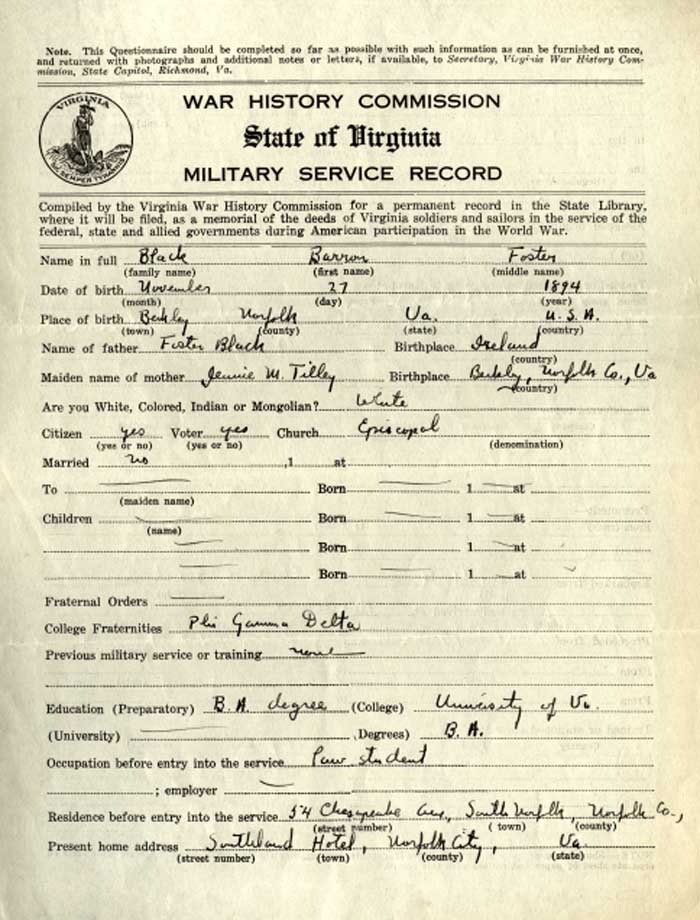 Note. This Questionnaire should be completed so far as possible with such information as can be furnished at once,
and returned with photographs and additional notes or letters, if available, to Secretary, Virginia War History Com-
mission, State Capitol, Richmond, Va.
VIRGINIA
SIC SEMPER TYRANNIS
WAR HISTORY COMMISSION
State of Virginia
MILITARY SERVICE RECORD
Compiled by the Virginia War History Commission for a permanent record in the State Library,
where it will be filed, as a memorial of the deeds of Virginia soldiers and sailors in the service of the
federal, state and allied governments during American participation in the World War.
Name in full Black Barron Foster
(family name) (first name) (middle name)
Date of birth November 27 1894
(month) (day) (year)
Place of birth Berkley Norfolk Va. U.S.A.
(town) (county) (state) (country)
Name of father Foster Black Birthplace Ireland
(country)
Maiden name of mother Jennie M. Tilley Birthplace Berkley, Norfolk Co., Va
(country)
Are you White, Colored, Indian or Mongolian? White
Citizen yes Voter yes Church Episcopal
(yes or no) (yes or no) (denomination)
Married no ,1 at
To Born 1 at
(maiden name)
Children Born 1 at
(name)
Born 1 at
Born 1 at
Fraternal Orders
College Fraternities Phi Gamma Delta
Previous military service or training none
Education (Preparatory) B.A. degree (College) University of Va.
(University) Degrees) B.A.
Occupation before entry into the service Law student
; employer
Residence before entry into the service 54 Chesapeake Ave., South Norfolk, Norfolk Co.,
(street number) (town) (county)
Present home address Southland Hotel, Norfolk City, Va
(street number) (town) (county) (state)